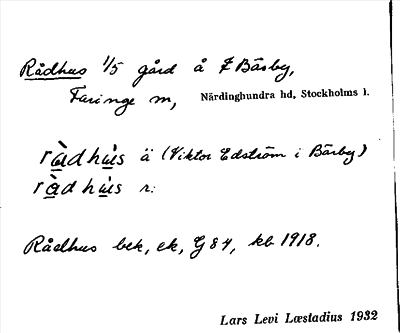 Rådhus 1/5 gård å F Bärby,
Faringe sn, Närdinghundra hd, Stockholms l.
ràdhùs ä (Viktor Edström i Bärby)
ràdhùs r:
Rådhus bek, ek, G 84, kb 1918.
Lars Levi Læstadius 1932